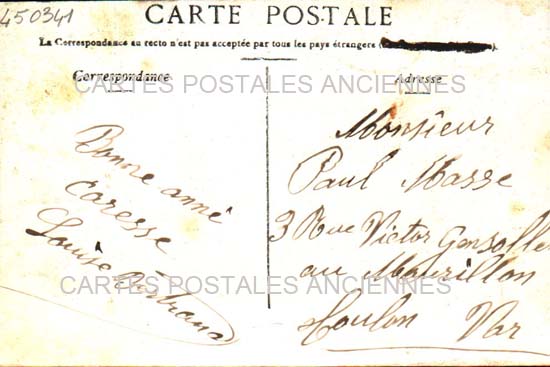 450341
CARTE POSTALE
La Correspondance au recto n'est pas acceptée par tous les pays étrangers (
Correspondance
Adresse
CARTES POSTALES ANCIENNES
Bonne anné
Caresse
Louise Bertrand
Monsieur
Paul Masse
3 Rue Victor
au Mourillon
Toulon Var
CARTES POSTALES ANCIENNES